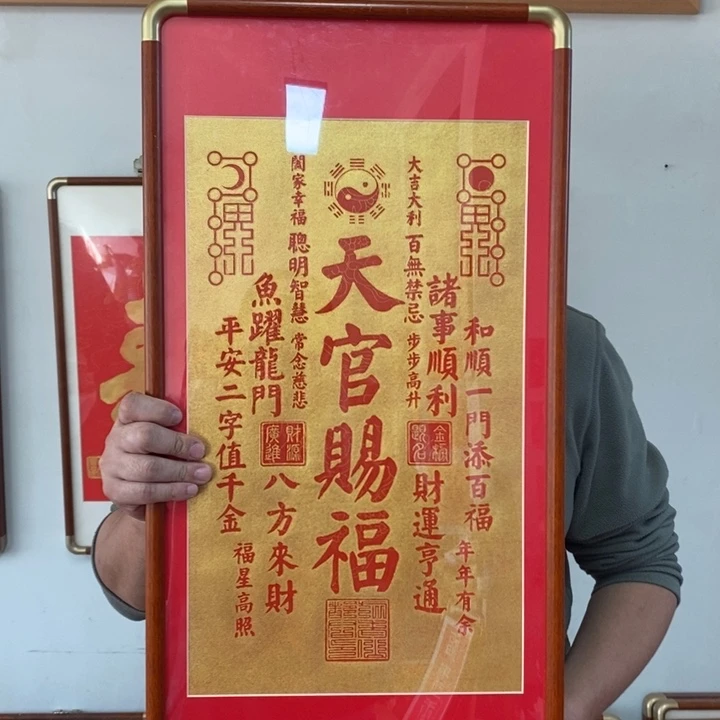 和順一門添百福
年年有余
諸事順利
金榜
題名
財運亨通
大吉大利
百無禁忌
步步高升
天官賜福
闔家幸福
聰明智慧
常念慈悲
魚躍龍門
財源
廣進
八方來財
平安二字值千金
福星高照